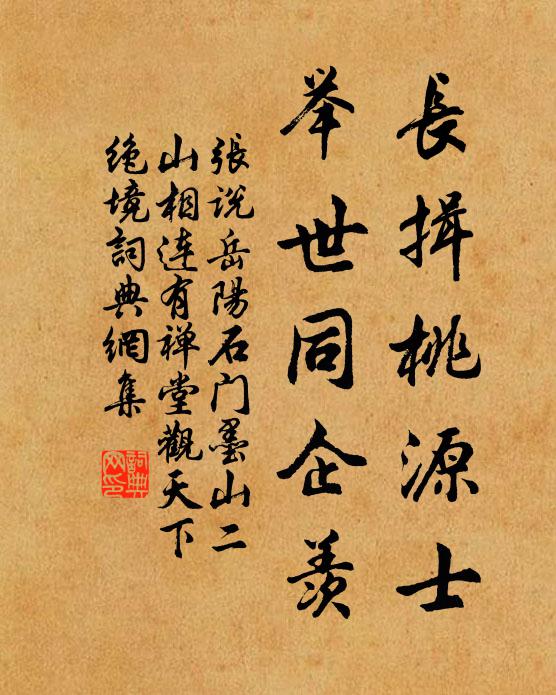 長揖桃源士
举世同企羨
張说岳陽石门墨山二
山相连有禅堂觀天下
绝境詞典網集
詞典
网印